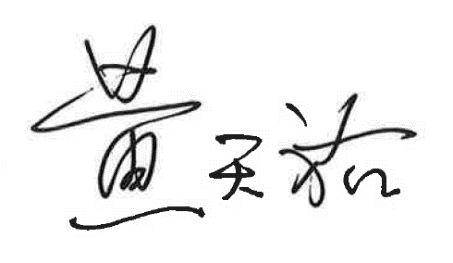 黄天祐